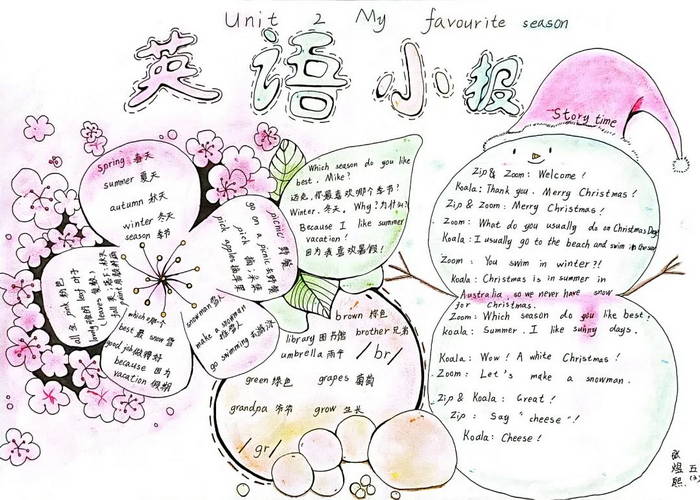 Unit 2 My favourite season
英语小报
Story time
spring 春天
summer 夏天
autumn 秋天
winter 冬天
season 季节
picnic 野餐
go on a picnic 去野餐
pick 摘；采集
pick apples 摘苹果
snowman 雪人
make a snowman
堆雪人
go swimming 去游泳
which 哪个
best 最 snow 雪
good job 做得好
because 因为
vacation 假期
all 全 pink 粉色
lovely 可爱的 leaf 叶子
Which season do you like
best, Mike?
迈克，你最喜欢哪个季节？
Winter. 冬天。 Why? 为什么？
Because I like summer
vacation!
因为我喜欢暑假！
brown 棕色
library 图书馆 brother 兄弟
umbrella 雨伞 /br/
green 绿色 grapes 葡萄
grandpa 爷爷 grow 生长
/gr/
Zip & Zoom: Welcome!
Koala: Thank you. Merry Christmas!
Zip & Zoom: Merry Christmas!
Zoom: What do you usually do on Christmas Day?
Koala: I usually go to the beach and swim in the sea.
Zoom: You swim in winter?!
Koala: Christmas is in summer in
Australia, so we never have snow
for Christmas.
Zoom: Which season do you like best?
koala: Summer. I like sunny days.
Koala: Wow! A white Christmas!
Zoom: Let's make a snowman.
Zip & Koala: Great!
Zip: Say "cheese"!
Koala: Cheese!